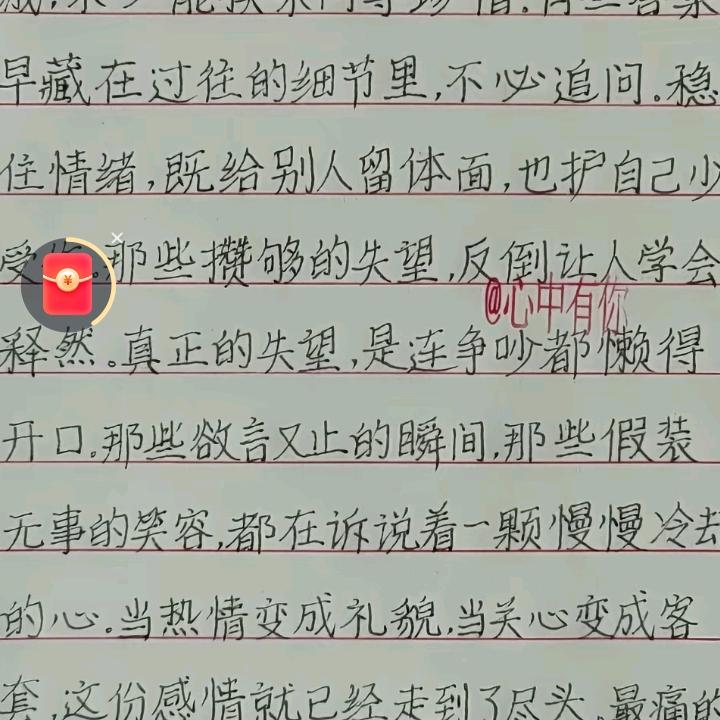 有些答案
早藏在过往的细节里,不必追问。稳
住情绪,既给别人留体面,也护自己少
受。那些攒够的失望,反倒让人学会
@心中有你
释然。真正的失望,是连争吵都懒得
开口。那些欲言又止的瞬间,那些假装
无事的笑容,都在诉说着一颗慢慢冷却
的心。当热情变成礼貌,当关心变成客
套,这份感情就已经走到了尽头,最痛的